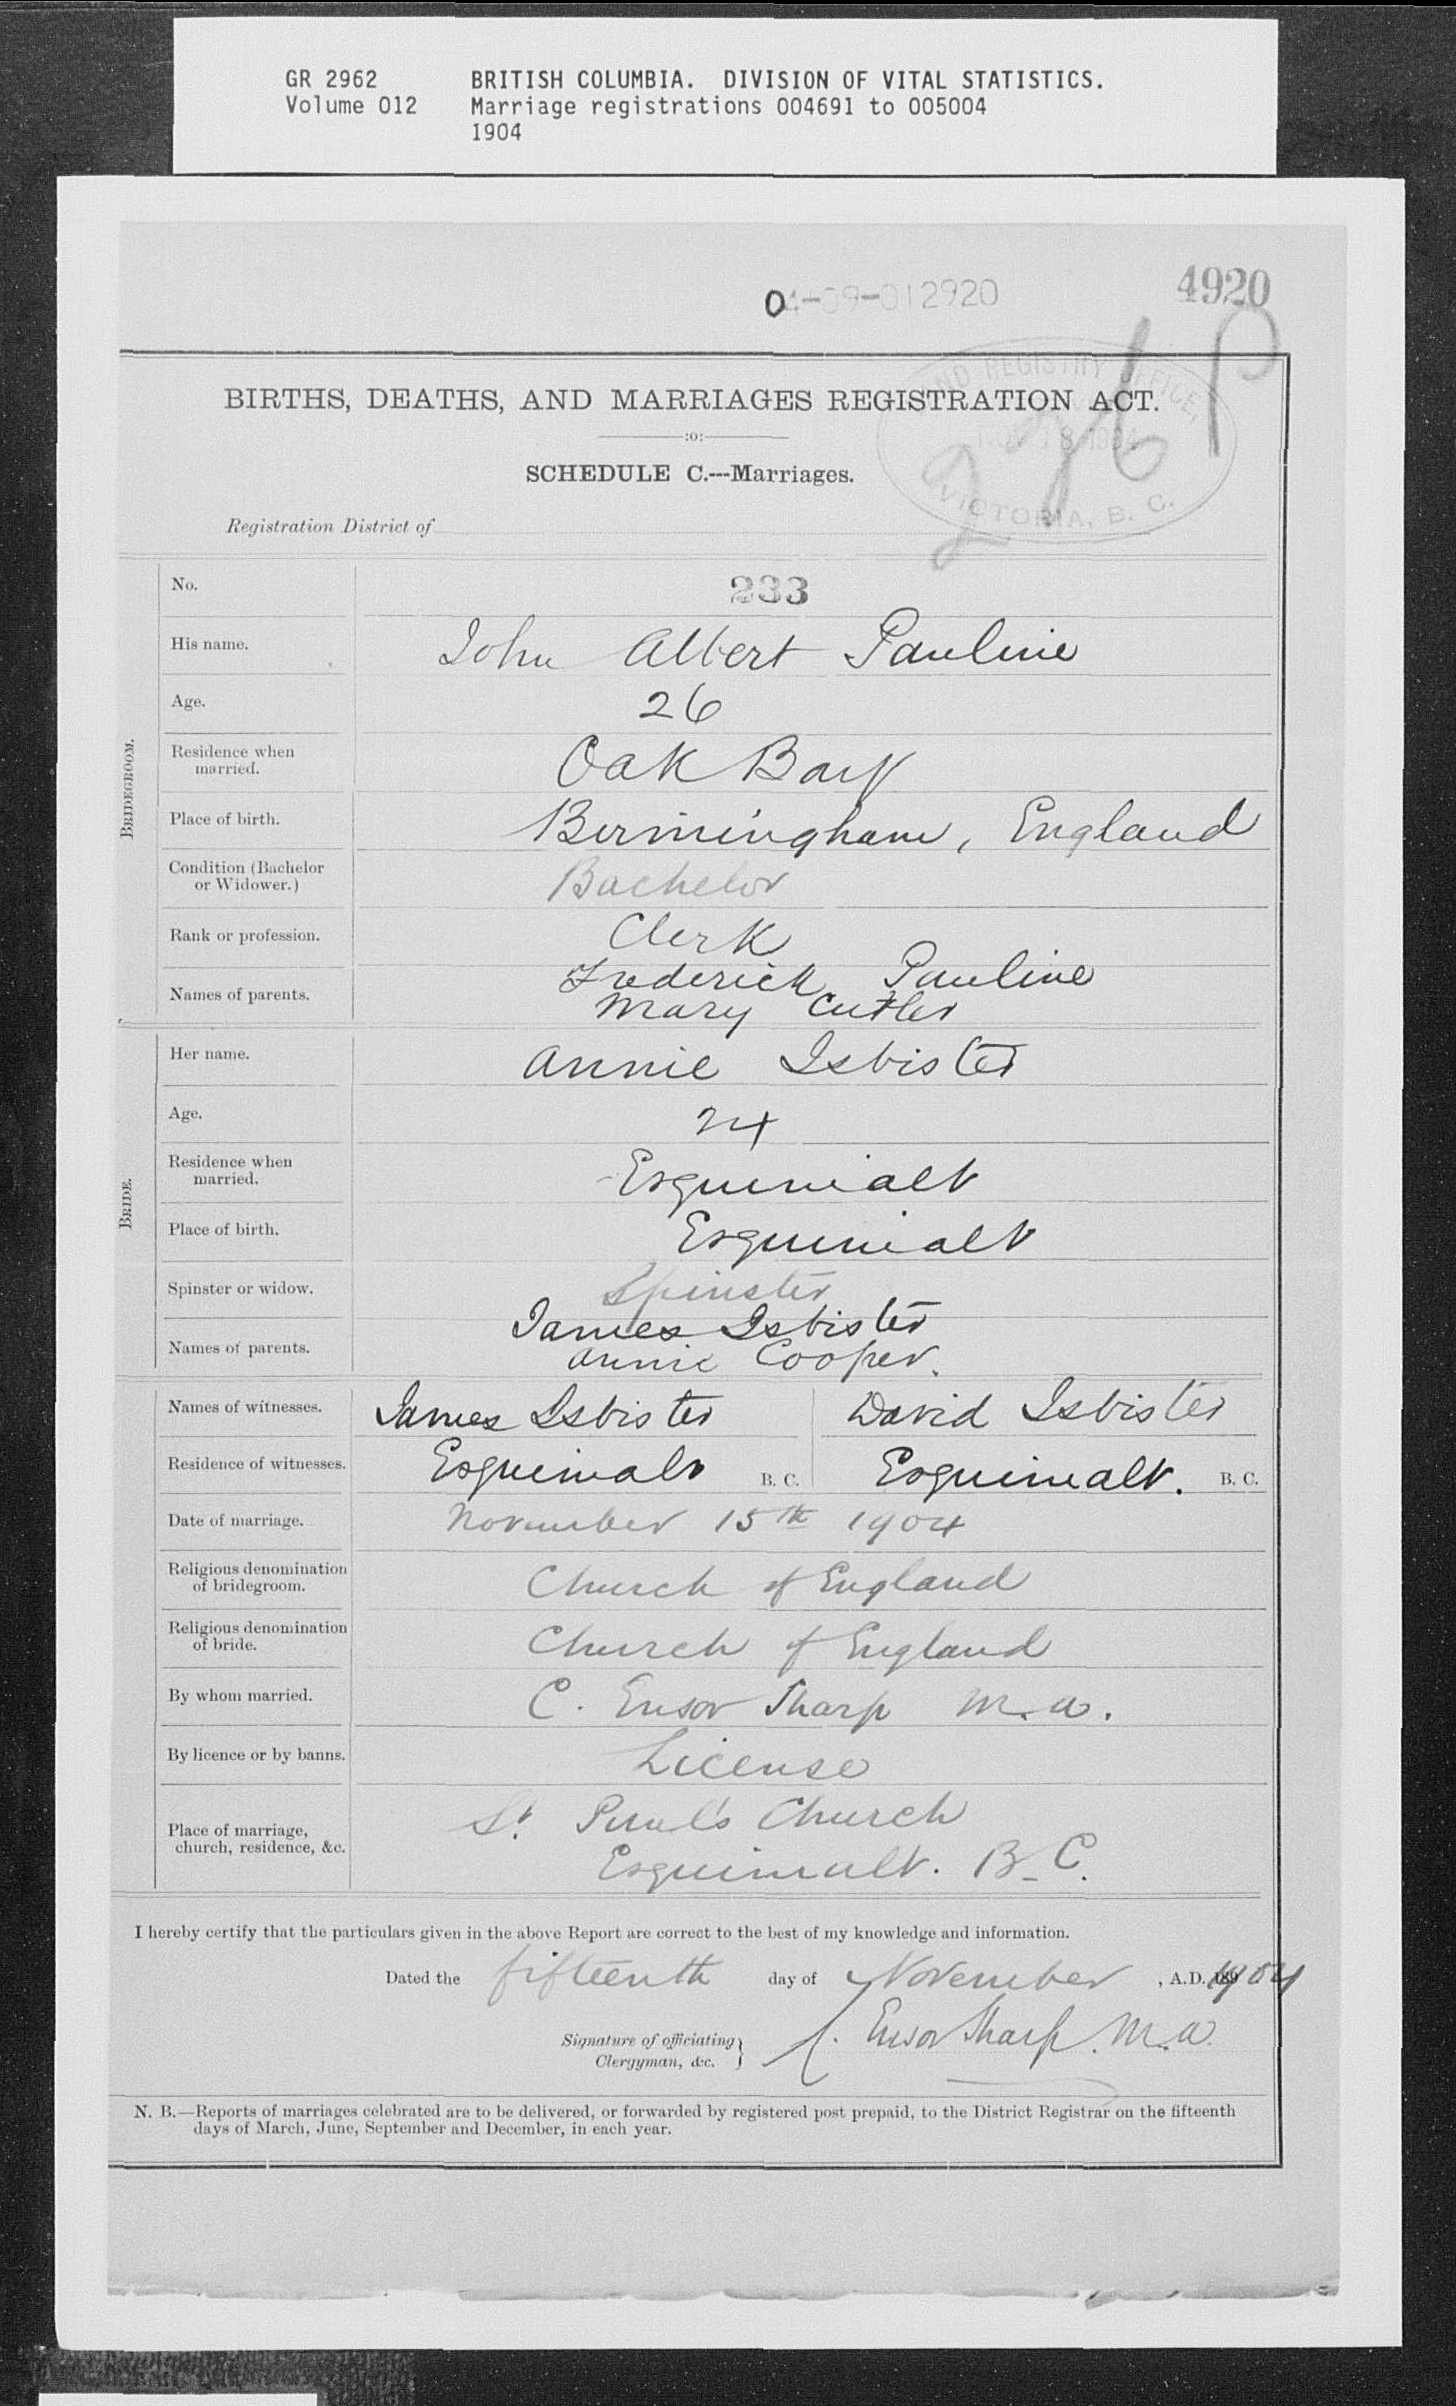 GR 2962 BRITISH COLUMBIA. DIVISION OF VITAL STATISTICS.
Volume 012 Marriage registrations 004691 to 005004
1904
04-09-012920
4920
BIRTHS, DEATHS, AND MARRIAGES REGISTRATION ACT.
:o:
SCHEDULE C.---Marriages.
REGISTRY OFFICE,
VICTORIA, B. C.
Registration District of
BRIDEGROOM.
No. 233
His name. John Albert Pauline
Age. 26
Residence when married. Oak Bay
Place of birth. Birmingham, England
Condition (Bachelor or Widower.) Bachelor
Rank or profession. Clerk
Names of parents. Frederick Pauline
Mary Cutler
BRIDE.
Her name. Annie Isbister
Age. 24
Residence when married. Esquimalt
Place of birth. Esquimalt
Spinster or widow. Spinster
Names of parents. James Isbister
Annie Cooper.
Names of witnesses. James Isbister David Isbister
Residence of witnesses. Esquimalt B. C. Esquimalt. B. C.
Date of marriage. November 15th 1904
Religious denomination of bridegroom. Church of England
Religious denomination of bride. Church of England
By whom married. C. Ensor Sharp M.A.
By licence or by banns. License
Place of marriage, church, residence, &c. St. Paul's Church
Esquimalt. B. C.
I hereby certify that the particulars given in the above Report are correct to the best of my knowledge and information.
Dated the fifteenth day of November, A.D. 1904
Signature of officiating Clergyman, &c. } C. Ensor Sharp. M.A.
N. B.—Reports of marriages celebrated are to be delivered, or forwarded by registered post prepaid, to the District Registrar on the fifteenth
days of March, June, September and December, in each year.